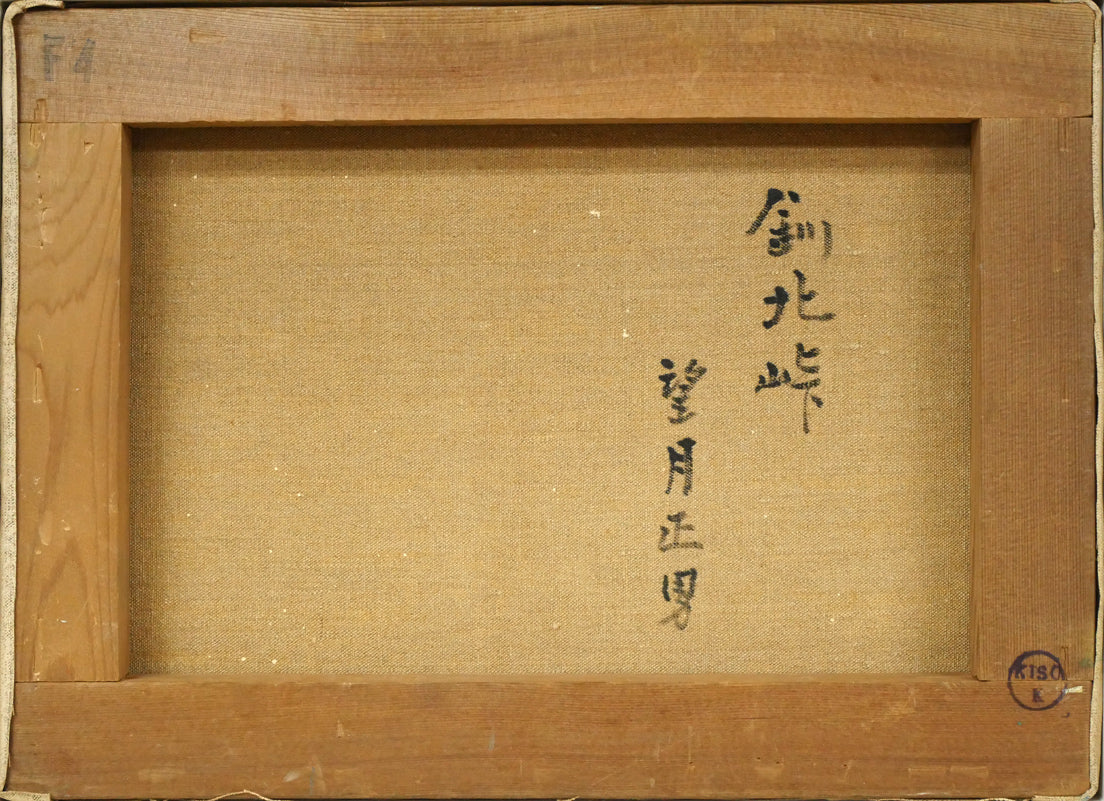 釧北峠
望月正男
F4
KISO
K